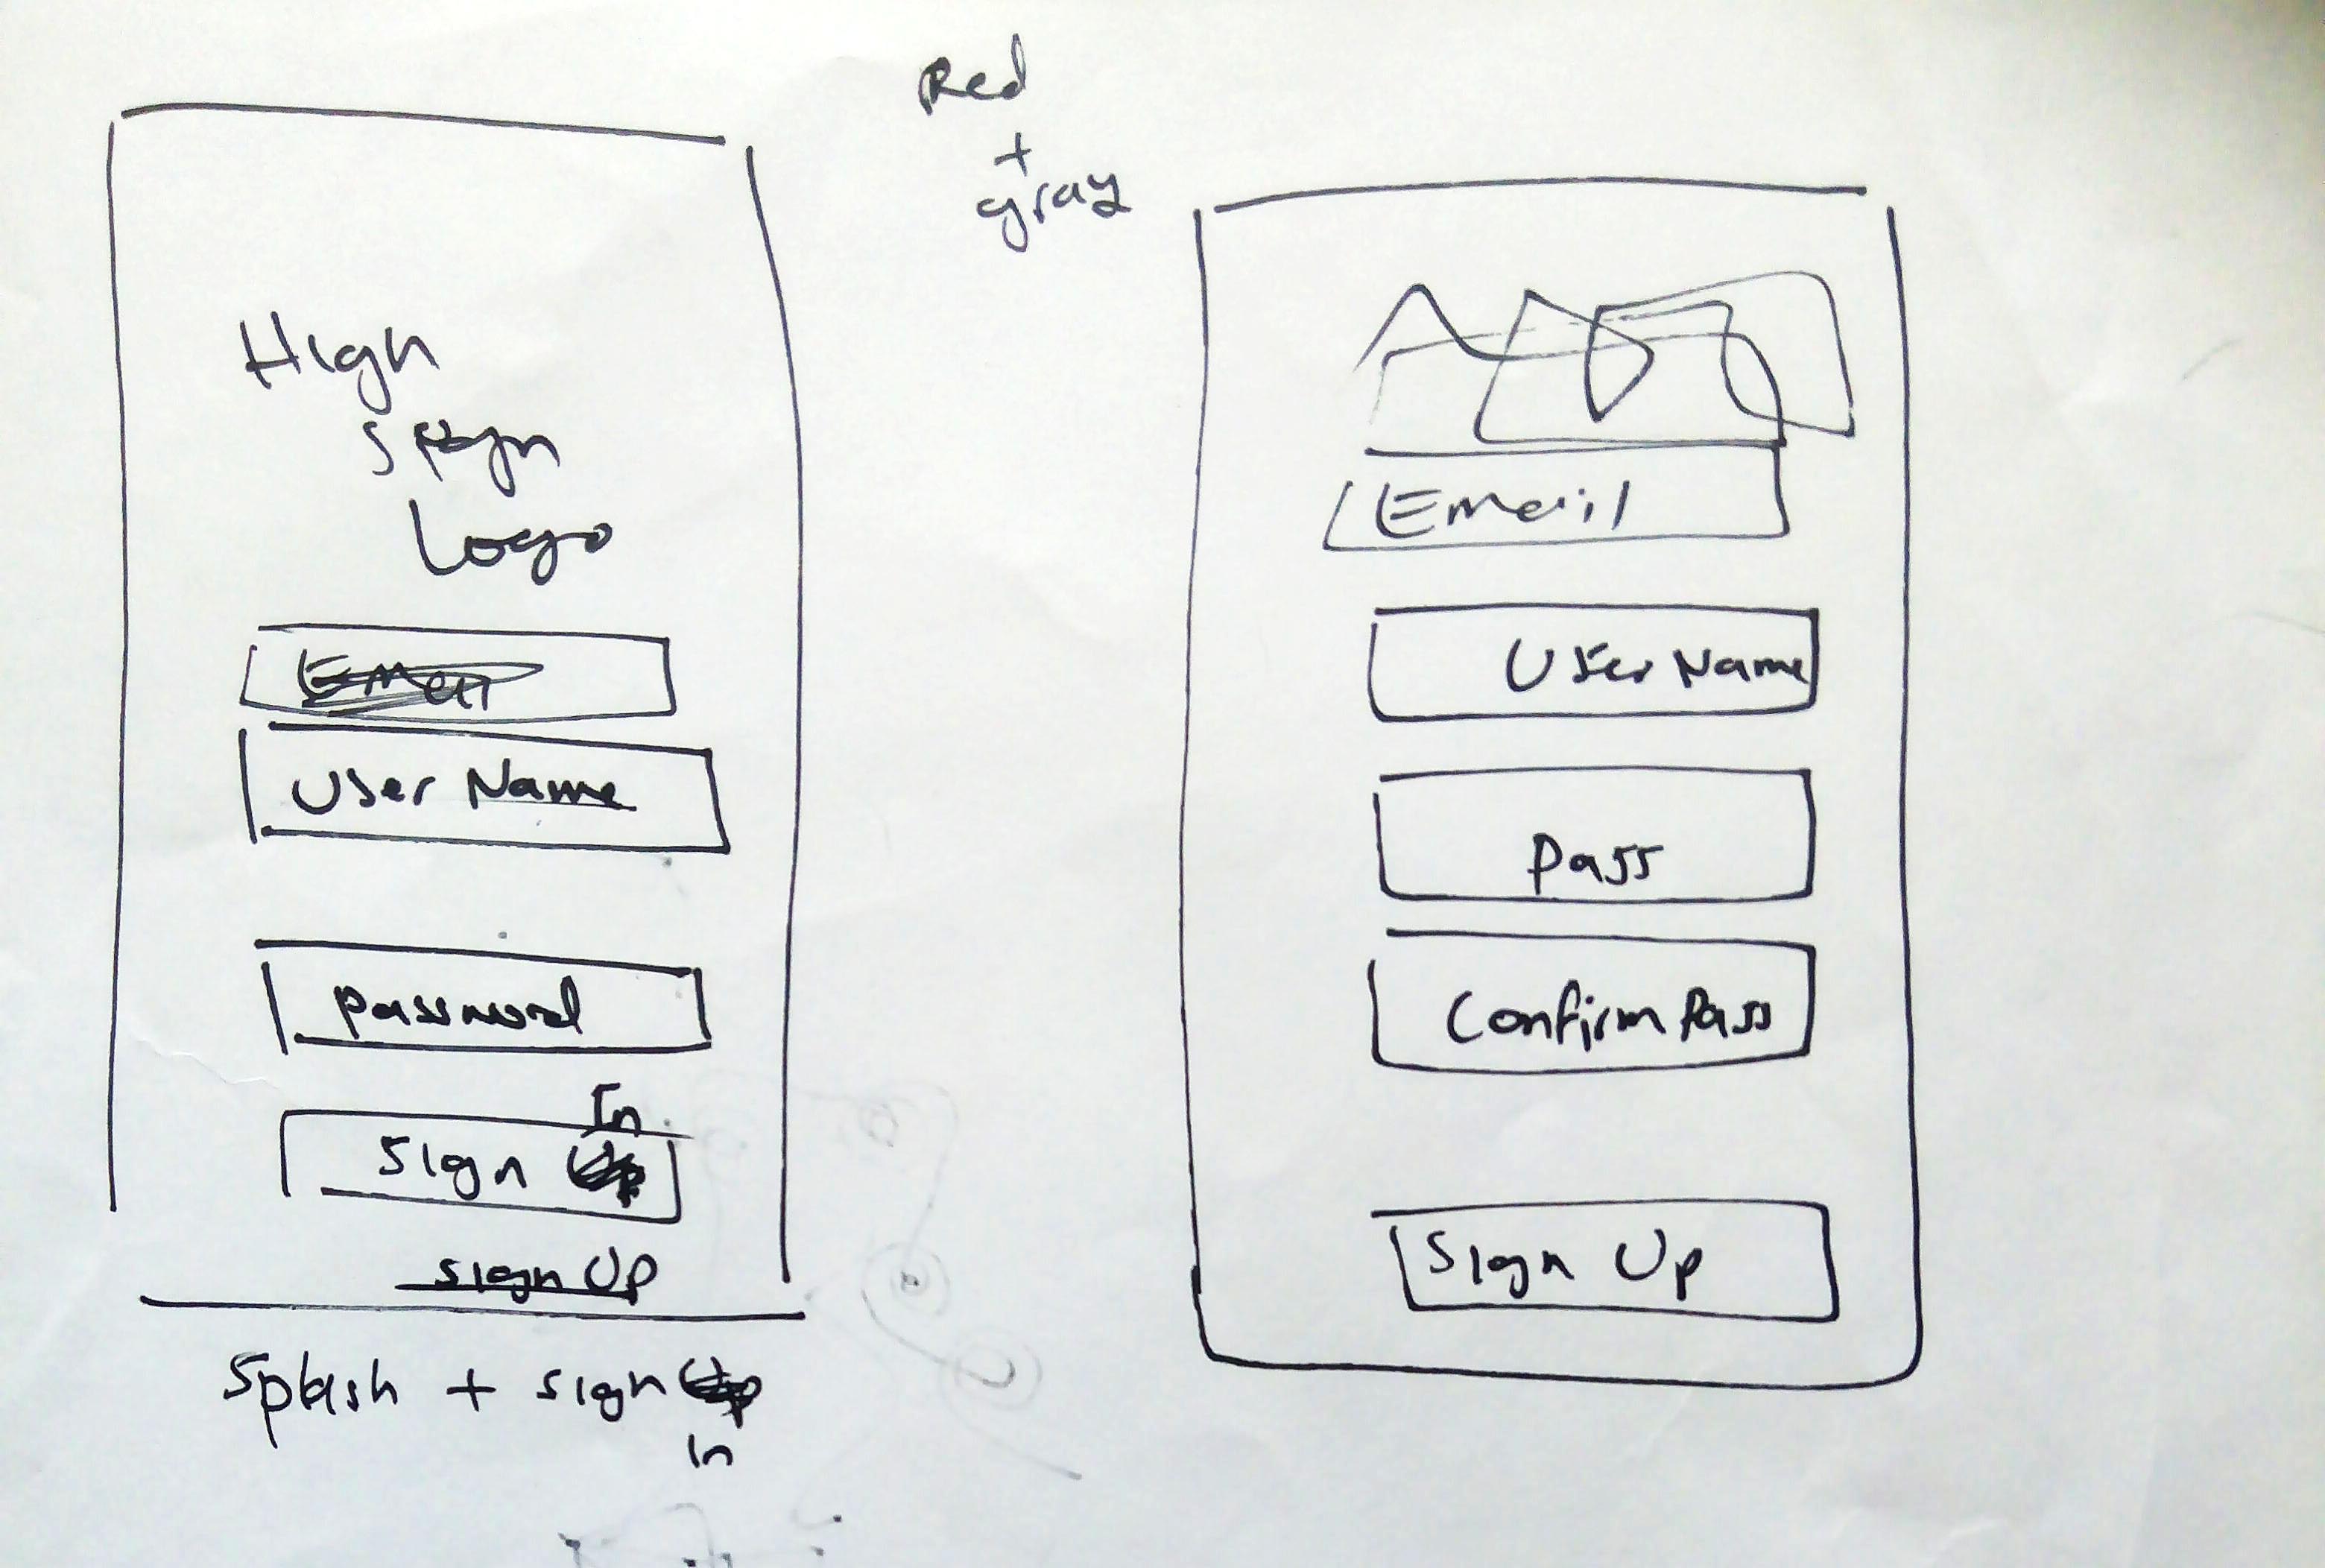 Red
+
gray
High
Logo
User Name
Password
In
Sign
Sign Up
Splash + Sign
In
Email
User Name
Pass
Confirm Pass
Sign Up